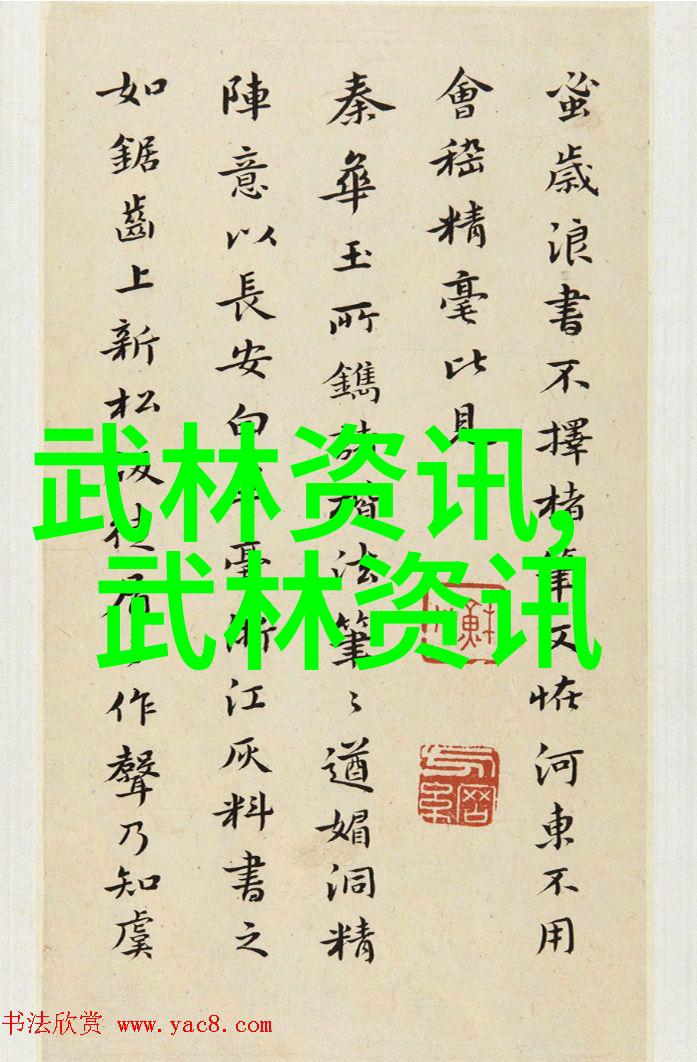 蚤歲浪書不擇楮筆又恠河東不用
會稽精毫比見
秦華玉所鐫楷法筆〻遒媚洞精
陣意以長安毫浙江灰料書之
如鋸齒上新松板徒作聲乃知虞
武林资讯,
武林资讯
书法欣赏 www.yac8.com